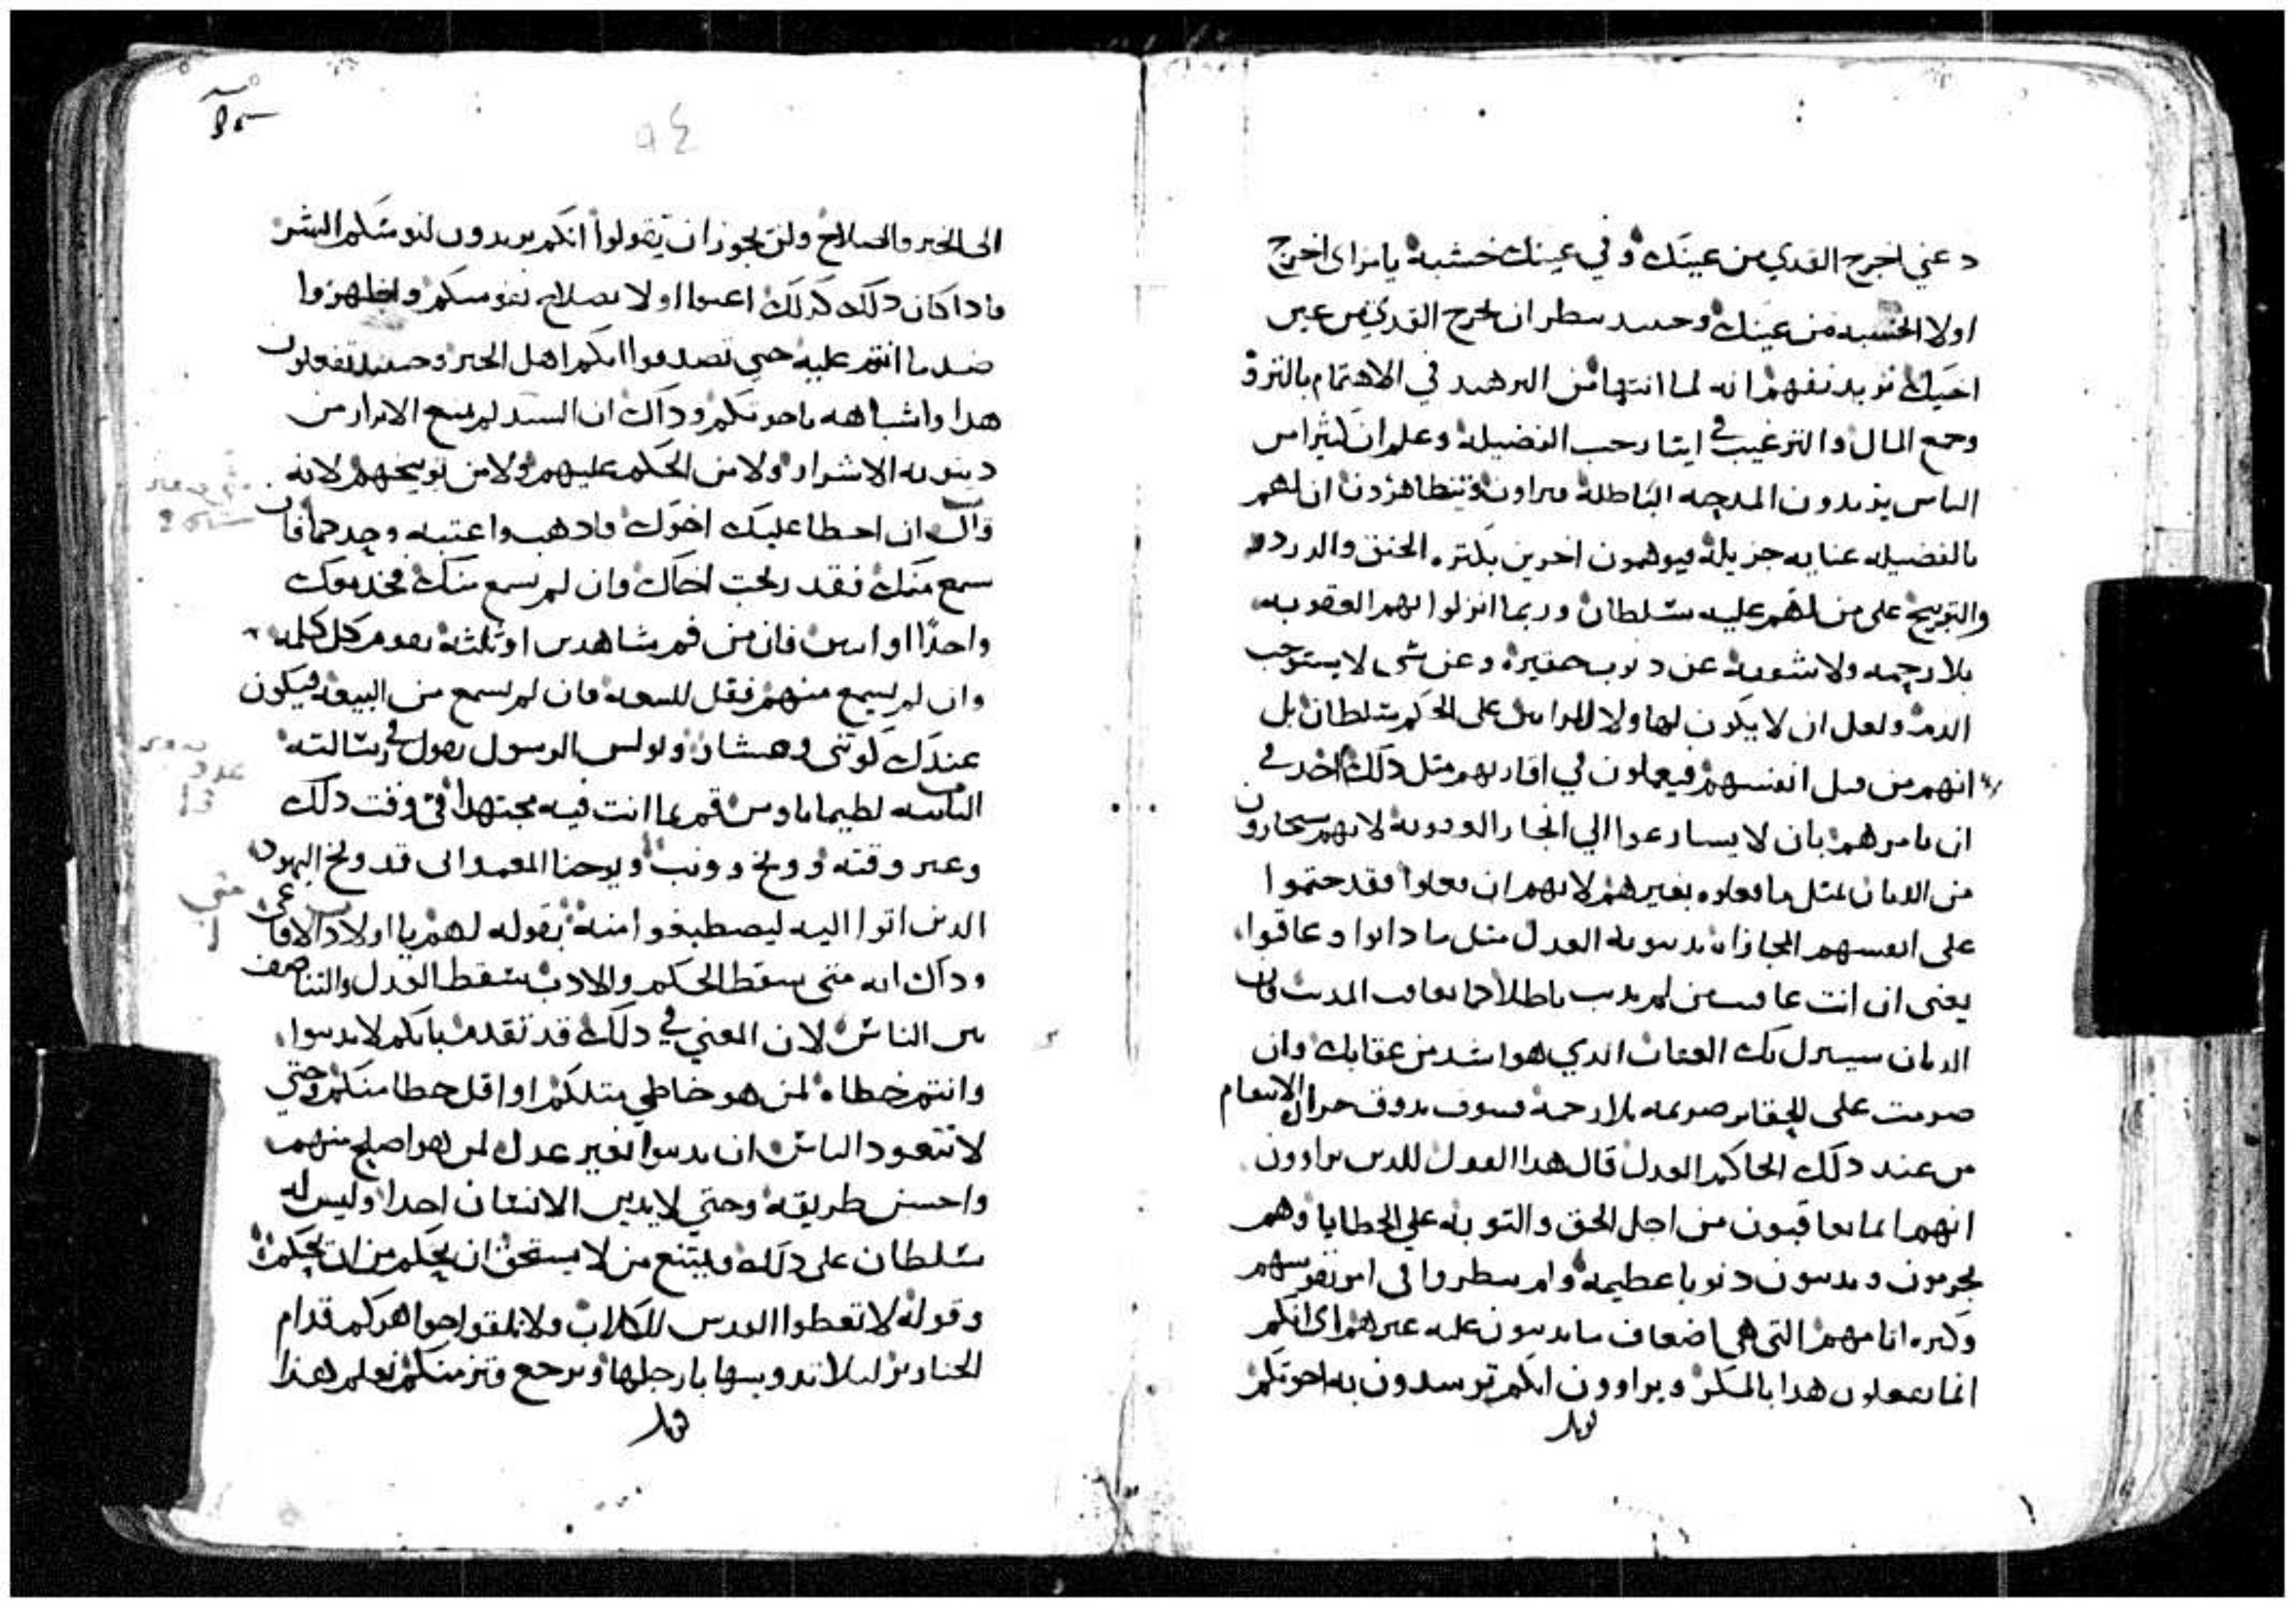 دعني اخرج القدي من عينك وفي عينك خشبة يامراى اخرج
اولا الخشبه من عينك وحينيد تنظر ان تخرج القدي من عين
اخيك نريد نفهم انه لما انتها من الترهيد في الاهتمام بالترف
وجمع المال والترغيب في ايثار حب الفضيلة وعلم ان كثيرا من
الناس يريدون المدحه الباطلة يراون ويتظاهرون ان لهم
بالفضيله عنايه جزيلة فيوهمون اخرين بكثره الحنق
والتوبيخ على من لهم عليه سلطان وربما انزلوا بهم العقوبه
بلا رحمه ولا شفوية عن دنوب حقيرة وعن شي لا يستوجب
الدم ولعل ان لا يكون لهاولا المراين على الحكم سلطان بل
انهم من قبل انفسهم فيعملون في اقاربهم مثل دلك اخد في
ان يامرهم بان لا يسارعوا الي العقوبة لانهم سيجازون
من الديان بمثل ما فعلوه بغيرهم لانهم ان فعلوا فقد حتموا
على انفسهم المجازاه بدينونه العدل مثل ما دانوا وعاقبوا
يعني ان انت عاقبت من لم يدنب باطلا كما يعاقب المدنب فان
الديان سينزل بك العقاب الدي هو اشد من عقابك وان
صرمت على صريمه بلا رحمة فسوف تدوق الانتقام
من عند دلك الحاكم العدل قال هدا القول للدين يراوون
انهم انما يعاقبون من اجل الحق والتوبة علي الخطايا وهم
يجرمون ويدنبون دنوبا عظيمه ولم ينظروا في امر نفوسهم
وكثره اثامهم التي هي اضعاف ما يدينون عليه غيرهم اى انكم
انما تفعلون هدا بالمكر ويراوون انكم ترشدون به اخوتكم
الى الخير والصلاح ولن يجوز ان تقولوا انكم تريدون لنفوسكم الشر
فادا كان دلك كدلك اعتنوا اولا بصلاح نفوسكم واظهروا
ضد ما انتم عليه حتي تصدقوا انكم اهل الخير وحينيد تفعلون
هدا واشباهه باخوتكم وداك ان السيد لم يمنع الابرار من
دينونه الاشرار ولا من الحكم عليهم ولا من توبيخهم لانه
قال ان اخطا عليك اخوك فادهب واعتبه وحدكما فان
سمع منك فقد ربحت اخاك وان لم يسمع منك فخد معك
واحدًا او اتنين فان من فم شاهدين او ثلثة تقوم كل كلمه
وان لم يسمع منهم فقل للبيعه فان لم يسمع من البيعه فيكون
عندك كوتني وعشار وبولس الرسول يقول في رسالته
الثانيه لطيماتاوس قم بما انت فيه مجتهدا في وقت دلك
وغير وقته ووبخ وونب ويوحنا المعمداني قد وبخ اليهود
الدين اتوا اليه ليصطبغوا منه بقوله لهم يا اولاد الافاعي
وداك انه متى سقط الحكم والادب سقط العدل والتناصف
بين الناس لان المعني في دلك قد تقدم بانكم لا تدينوا
وانتم خطاه لمن هو خاطي متلكم او اقل خطا منكم وحتي
لا تتعود الناس ان يدينوا بغير عدل لمن هو اصلح منهم
واحسن طريقه وحتي لا يدين الانسان احدا وليس له
سلطان على دلك ويمتنع من لا يستحق ان يحكم من ان يحكم
وقوله لا تعطوا القدس للكلاب ولا تلقوا جواهركم قدام
الخنازير ليلا تدوسها بارجلها وترجع فتزمنكم نعلم هدا